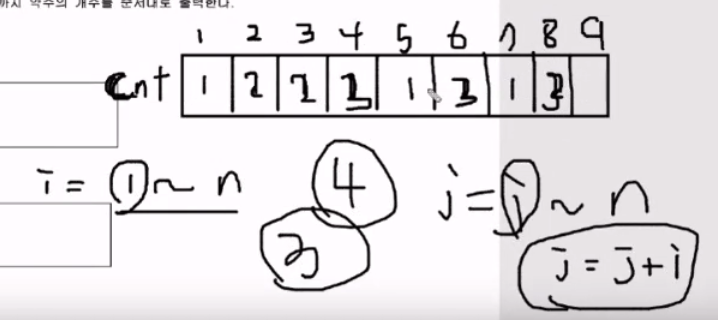 까지 약수의 개수를 순서대로 출력한다.
1 2 3 4 5 6 7 8 9
cnt 1 2 2 3 1 3 1 3
i = 1 ~ n 4 j = i ~ n
3 j = j+i